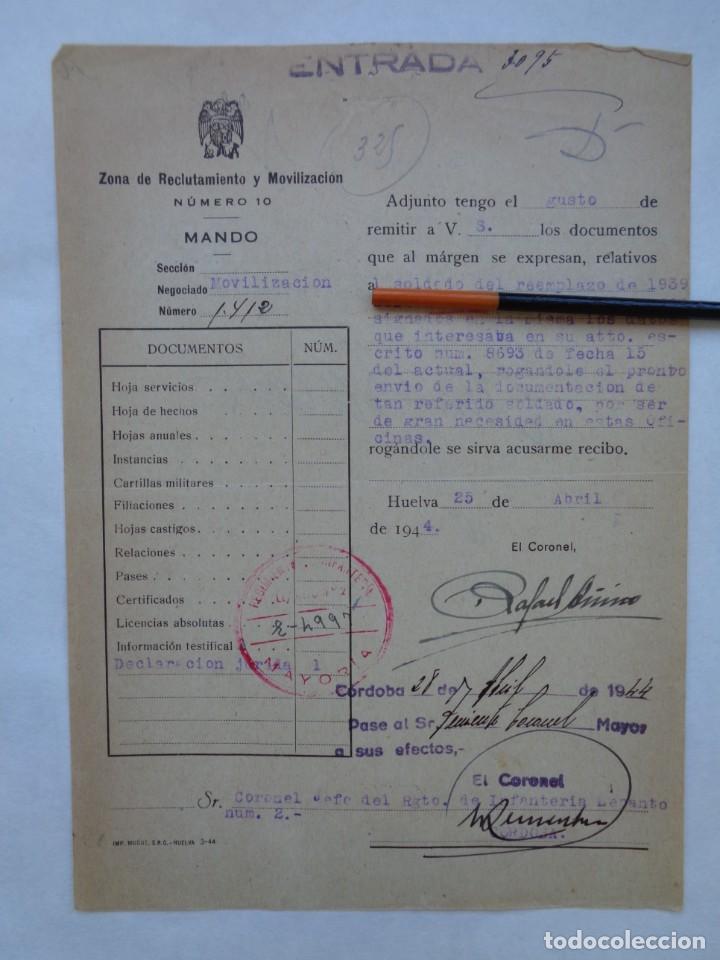 ENTRADA 3095
325
Zona de Reclutamiento y Movilización
NÚMERO 10
MANDO
Sección
Negociado Movilizacion
Número 1.412
DOCUMENTOS NÚM.
Hoja servicios
Hoja de hechos
Hojas anuales
Instancias
Cartillas militares
Filiaciones
Hojas castigos
Relaciones
Pases
Certificados
Licencias absolutas
Información testifical
Declaracion jurada 1
Adjunto tengo el gusto de
remitir a V. S. los documentos
que al márgen se expresan, relativos
al soldado del reemplazo de 1939
en la misma los datos
que interesaba en su atto. es-
crito num. 8693 de fecha 15
del actual, rogandole el pronto
envio de la documentacion de
tan referido soldado, por ser
de gran necesidad en estas Ofi-
cinas.
rogándole se sirva acusarme recibo.
Huelva 25 de Abril
de 1944.
El Coronel,
Rafael
INFANTERIA
MAYORIA
Córdoba 28 de Abril de 1944
Pase al Sr. Teniente Coronel Mayor
a sus efectos,-
El Coronel
Sr. Coronel Jefe del Rgto. de Infanteria Lepanto
num. 2.-
CORDOBA.
IMP. MUÑOZ, S.R.C.-HUELVA 3-44
todocoleccion